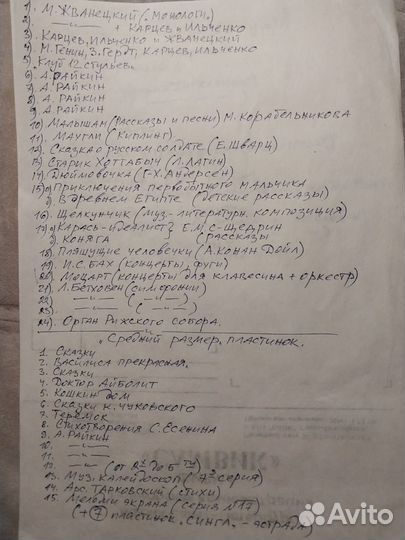 1) М. Жванецкий (. монологи.)
2) —"— + Карцев и Ильченко
3) Карцев, Ильченко и Жванецкий
4) М. Генин, З. Гердт, Карцев, Ильченко
5) Клуб 12 стульев.
6) А. Райкин
7) А. Райкин
8) А. Райкин
9) А. Райкин
10) Малышам (рассказы и песни) М. Корабельникова
11) Маугли (Киплинг)
12) Сказка о русском солдате (Е. Шварц)
13) Старик Хоттабыч (Л. Лагин)
14) Дюймовочка (Г-Х. Андерсен)
15) Приключения первобытного мальчика
в Древнем Египте (детские рассказы)
16) Щелкунчик (муз-литературн. композиция)
17) Карась-идеалист Е.М. С-Щедрин
Коняга (рассказы
18) Пляшущие человечки (А. Конан Дойл)
19) И.С. Бах (концерты, фуги)
20) Моцарт (концерты для клавесина + оркестр)
21) Л. Бетховен (симфонии)
22) —"— (—"—)
23) —"— (—"—)
24) Орган Рижского собора.
Средний размер. пластинок.
1. Сказки
2. Василиса прекрасная.
3. Сказки
4. Доктор Айболит
5. Кошкин дом
6. Сказки К. Чуковского
7. Теремок
8. Стихотворения С. Есенина
9. А. Райкин
10. —"—
11. —"—
12. —"— (от 2х до 5ти)
13. Муз. калейдоскоп (7я серия)
14. Арс. Тарковский (стихи)
15. Мелоди экрана (серия №17)
(+ 7 пластинок. сингл. - эстрада)
Avito